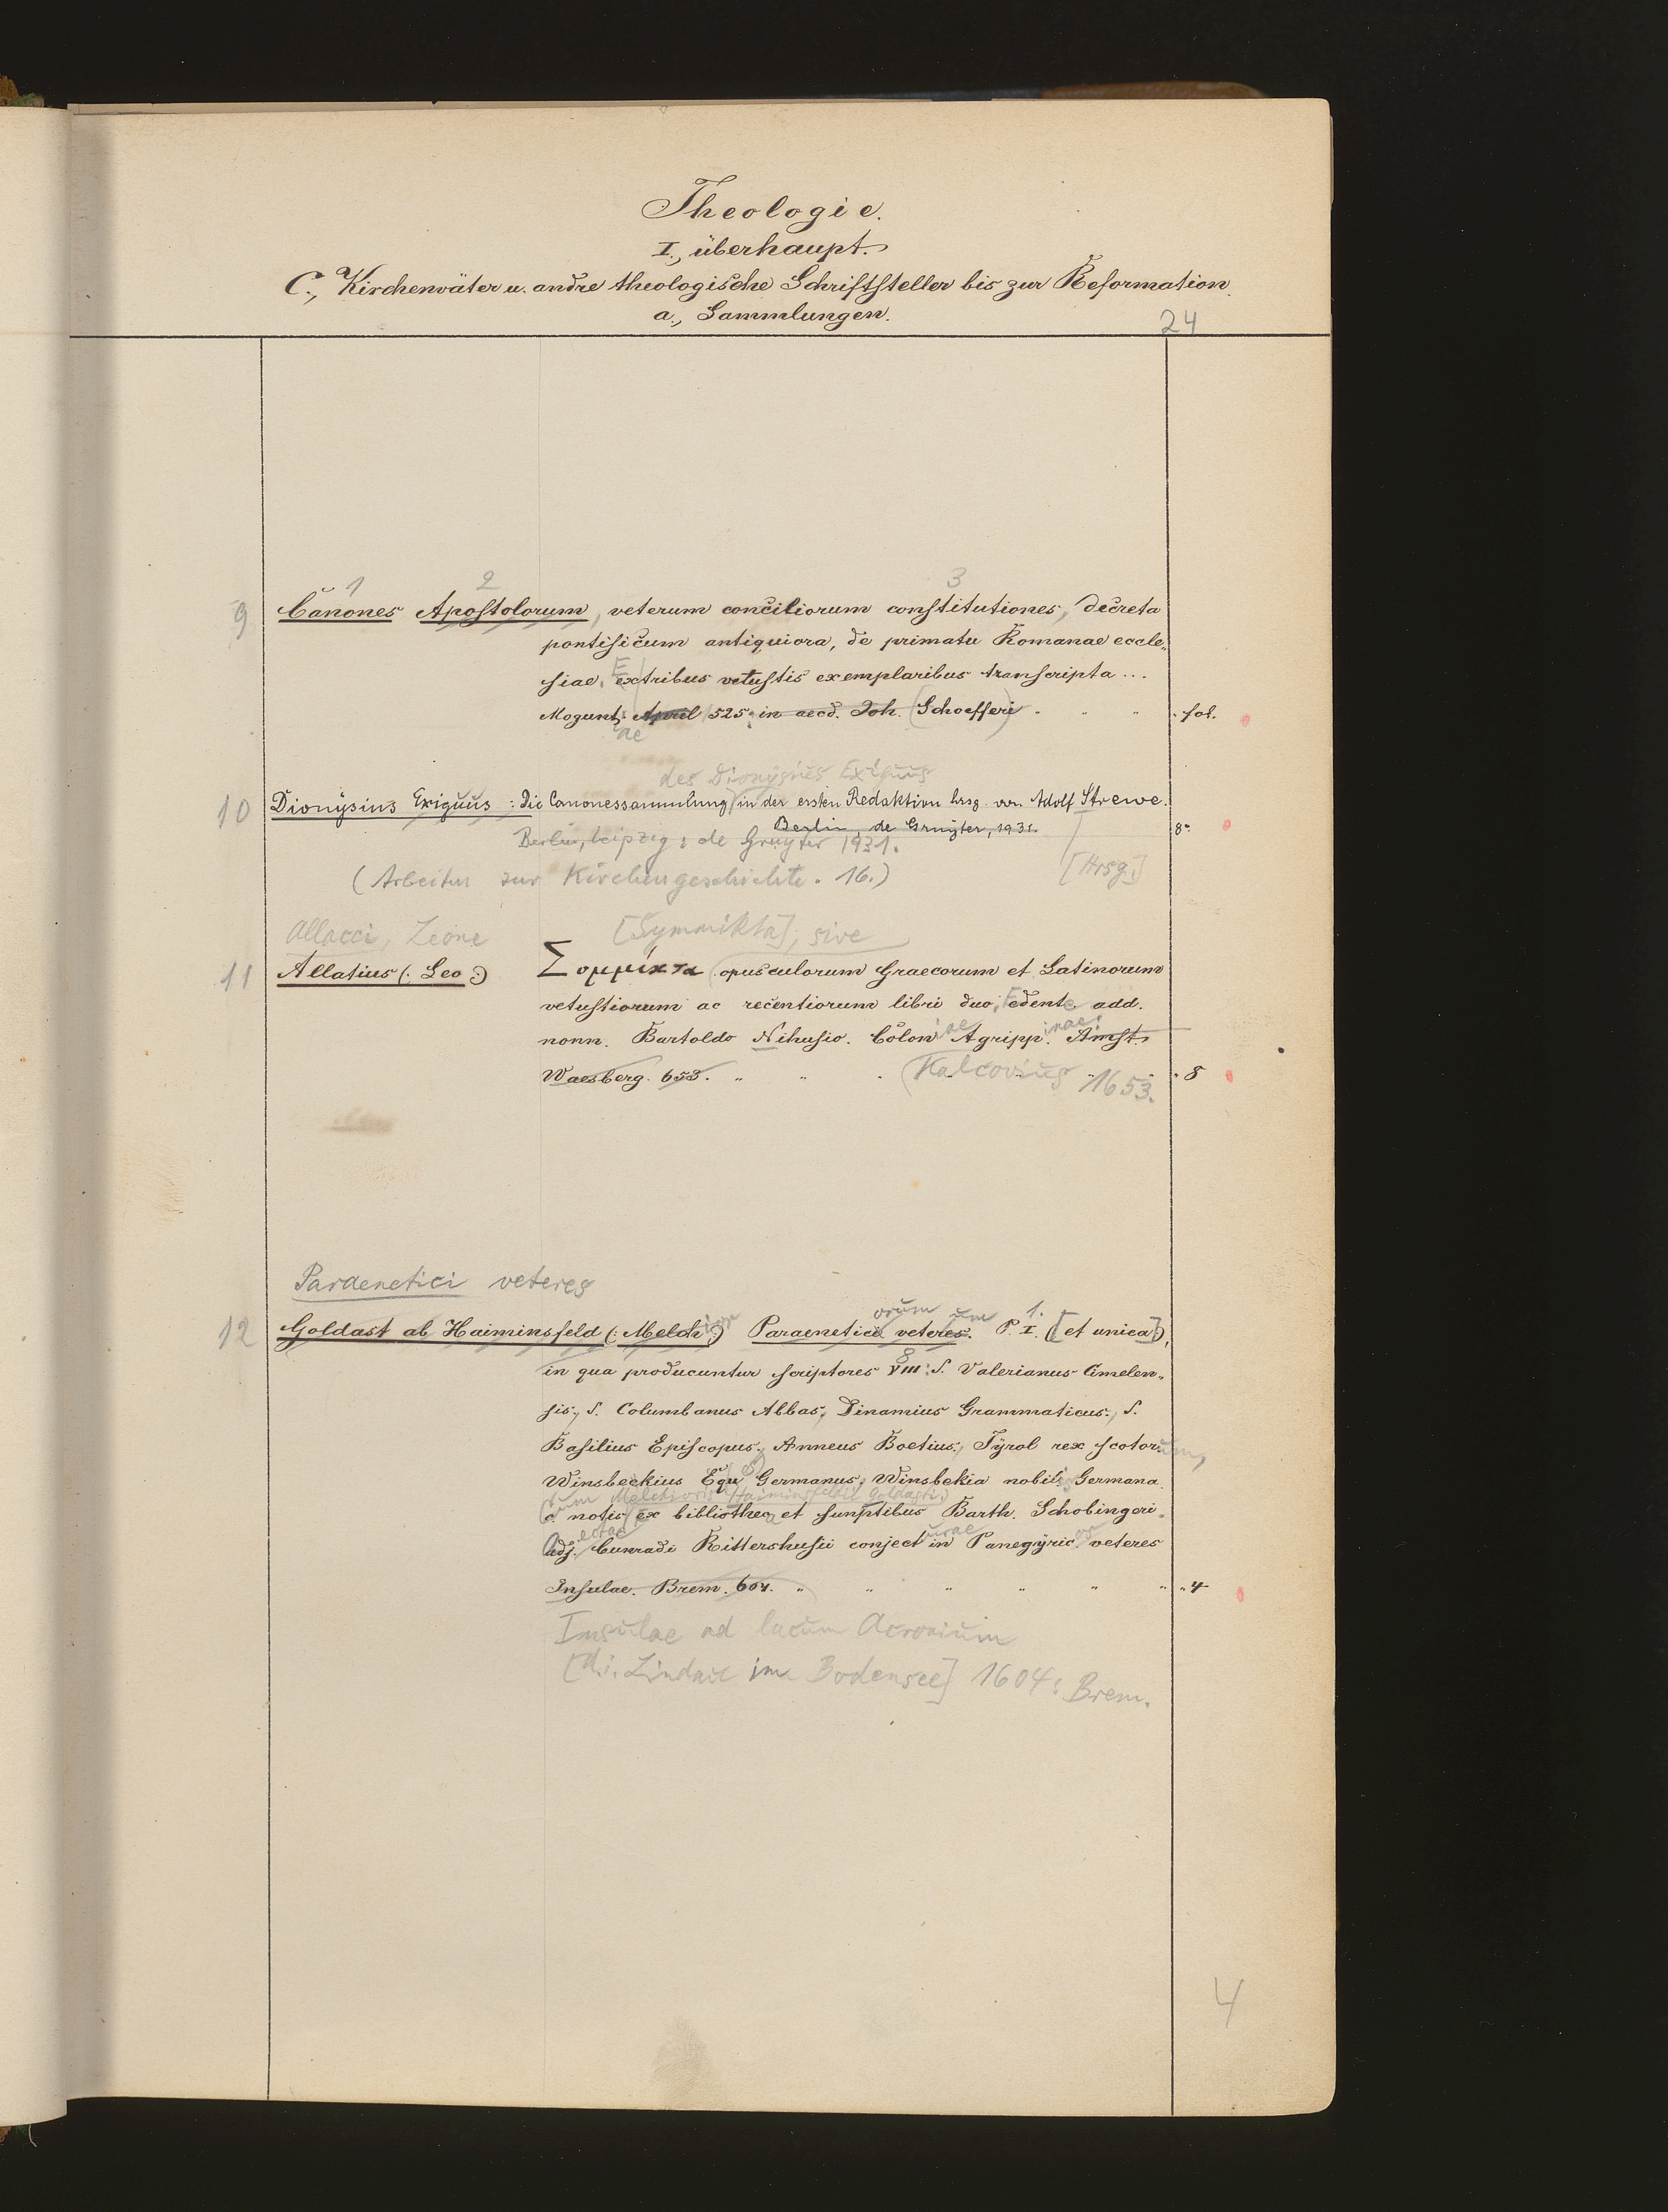 Theologie.
I., überhaupt.
C., Kirchenväter u. andre theologische Schriftsteller bis zur Reformation.
a., Sammlungen.
24
1 2 3
9 Canones Apostolorum, veterum conciliorum constitutiones, decreta
pontificum antiquiora, de primatu Romanae eccle„
siae. Ex tribus vetustis exemplaribus transcripta ...
Mogunt. April 525. in aed. Joh. (Schoefferi) fol.
ae
des Dionysius Exiguus
10 Dionysius Exiguus : Die Canonessammlung in der ersten Redaktion hrsg. von Adolf Strewe.
Berlin, de Gruyter, 1931. 8°
Berlin, Leipzig : de Gruyter 1931.
(Arbeiten zur Kirchengeschichte. 16.) [Hrsg.]
Allacci, Leone [Symmikta], sive
11 Allatius (: Leo :) Σομμίκτα opusculorum Graecorum et Latinorum
vetustiorum ac recentiorum libri duo, Edente add.
nonn. Bartoldo Nihusio. Coloniae Agrippinae: Amst.
Waesberg. 653. Kalcovius 1653. 8
Paraenetici veteres
orum um 1.
12 Goldast ab Haiminsfeld (: Melchior :) Paraenetici veteres. P. I. ([et unica]),
8
in qua producuntur scriptores VIII: S. Valerianus Cimelen„
sis, S. Columbanus Abbas, Dinamius Grammaticus, S.
Basilius Episcopus, Anneus Boetius, Tyrol rex scotorum,
Winsbeckius Equ es Germanus, Winsbekia nobilis Germana.
(cum Melchioris Haiminsfeldii Goldasti)
c notis ex bibliotheca et sumptibus Barth. Schobingeri.
Adjectae Cunradi Rittershusii conjecturae in Panegyricos veteres
Insulae. Brem. 604. 4
Insulae ad lacum Acronium
[d.i. Lindau im Bodensee] 1604: Brem.
4